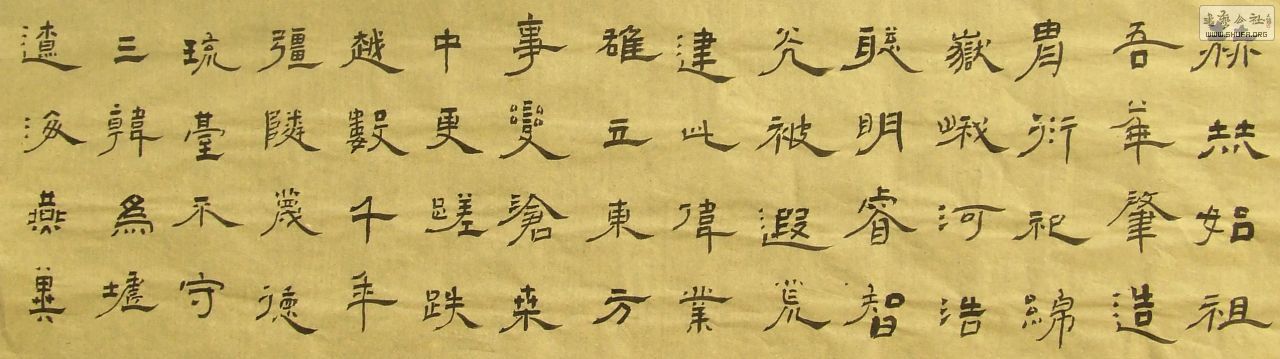 赫赫始祖
吾華肇造
胄衍祀綿
嶽峨河浩
聰明睿智
光被遐荒
建此偉業
雄立東方
事變滄桑
中更蹉跌
越數千年
彊隣蔑德
琉臺不守
三韓為墟
遼海燕冀
书艺公社
WWW.SHUFA.ORG